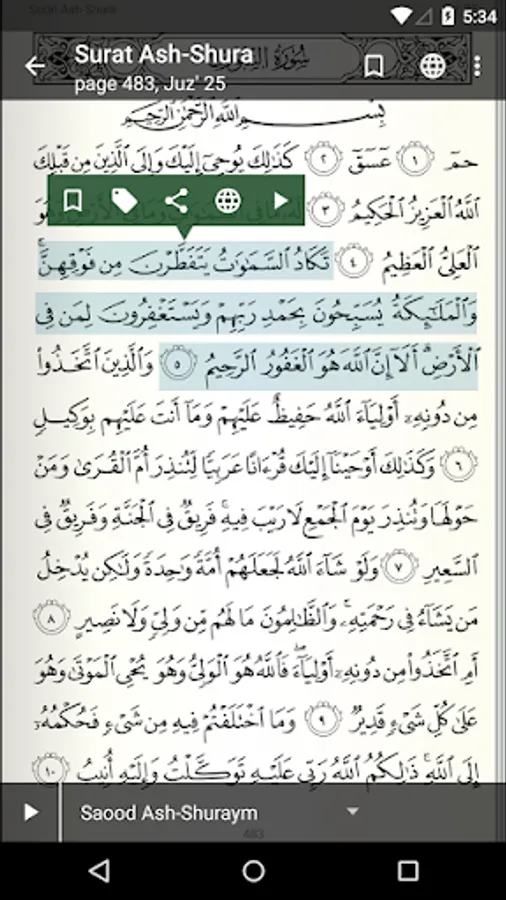 5:34
Surat Ash-Shura
page 483, Juz' 25
بِسْمِ اللَّهِ الرَّحْمَٰنِ الرَّحِيمِ
حمٓ ١ عٓسٓقٓ ٢ كَذَٰلِكَ يُوحِيٓ إِلَيْكَ وَإِلَى ٱلَّذِينَ مِن قَبْلِكَ
ٱللَّهُ ٱلْعَزِيزُ ٱلْحَكِيمُ ٣
ٱلْعَلِيُّ ٱلْعَظِيمُ ٤ تَكَادُ ٱلسَّمَٰوَٰتُ يَتَفَطَّرْنَ مِن فَوْقِهِنَّ ۚ
وَٱلْمَلَٰٓئِكَةُ يُسَبِّحُونَ بِحَمْدِ رَبِّهِمْ وَيَسْتَغْفِرُونَ لِمَن فِى
ٱلْأَرْضِ ۗ أَلَآ إِنَّ ٱللَّهَ هُوَ ٱلْغَفُورُ ٱلرَّحِيمُ ٥ وَٱلَّذِينَ ٱتَّخَذُوا۟
مِن دُونِهِۦٓ أَوْلِيَآءَ ٱللَّهُ حَفِيظٌ عَلَيْهِمْ وَمَآ أَنتَ عَلَيْهِم بِوَكِيلٍ
٦ وَكَذَٰلِكَ أَوْحَيْنَآ إِلَيْكَ قُرْءَانًا عَرَبِيًّا لِّتُنذِرَ أُمَّ ٱلْقُرَىٰ وَمَنْ
حَوْلَهَا وَتُنذِرَ يَوْمَ ٱلْجَمْعِ لَا رَيْبَ فِيهِ ۚ فَرِيقٌ فِى ٱلْجَنَّةِ وَفَرِيقٌ فِى
ٱلسَّعِيرِ ٧ وَلَوْ شَآءَ ٱللَّهُ لَجَعَلَهُمْ أُمَّةً وَٰحِدَةً وَلَٰكِن يُدْخِلُ
مَن يَشَآءُ فِى رَحْمَتِهِۦ ۚ وَٱلظَّٰلِمُونَ مَا لَهُم مِّن وَلِىٍّ وَلَا نَصِيرٍ ٨
أَمِ ٱتَّخَذُوا۟ مِن دُونِهِۦٓ أَوْلِيَآءَ ۖ فَٱللَّهُ هُوَ ٱلْوَلِىُّ وَهُوَ يُحْىِ ٱلْمَوْتَىٰ وَهُوَ
عَلَىٰ كُلِّ شَىْءٍ قَدِيرٌ ٩ وَمَا ٱخْتَلَفْتُمْ فِيهِ مِن شَىْءٍ فَحُكْمُهُۥٓ
إِلَى ٱللَّهِ ۚ ذَٰلِكُمُ ٱللَّهُ رَبِّى عَلَيْهِ تَوَكَّلْتُ وَإِلَيْهِ أُنِيبُ ١٠
Saood Ash-Shuraym
483